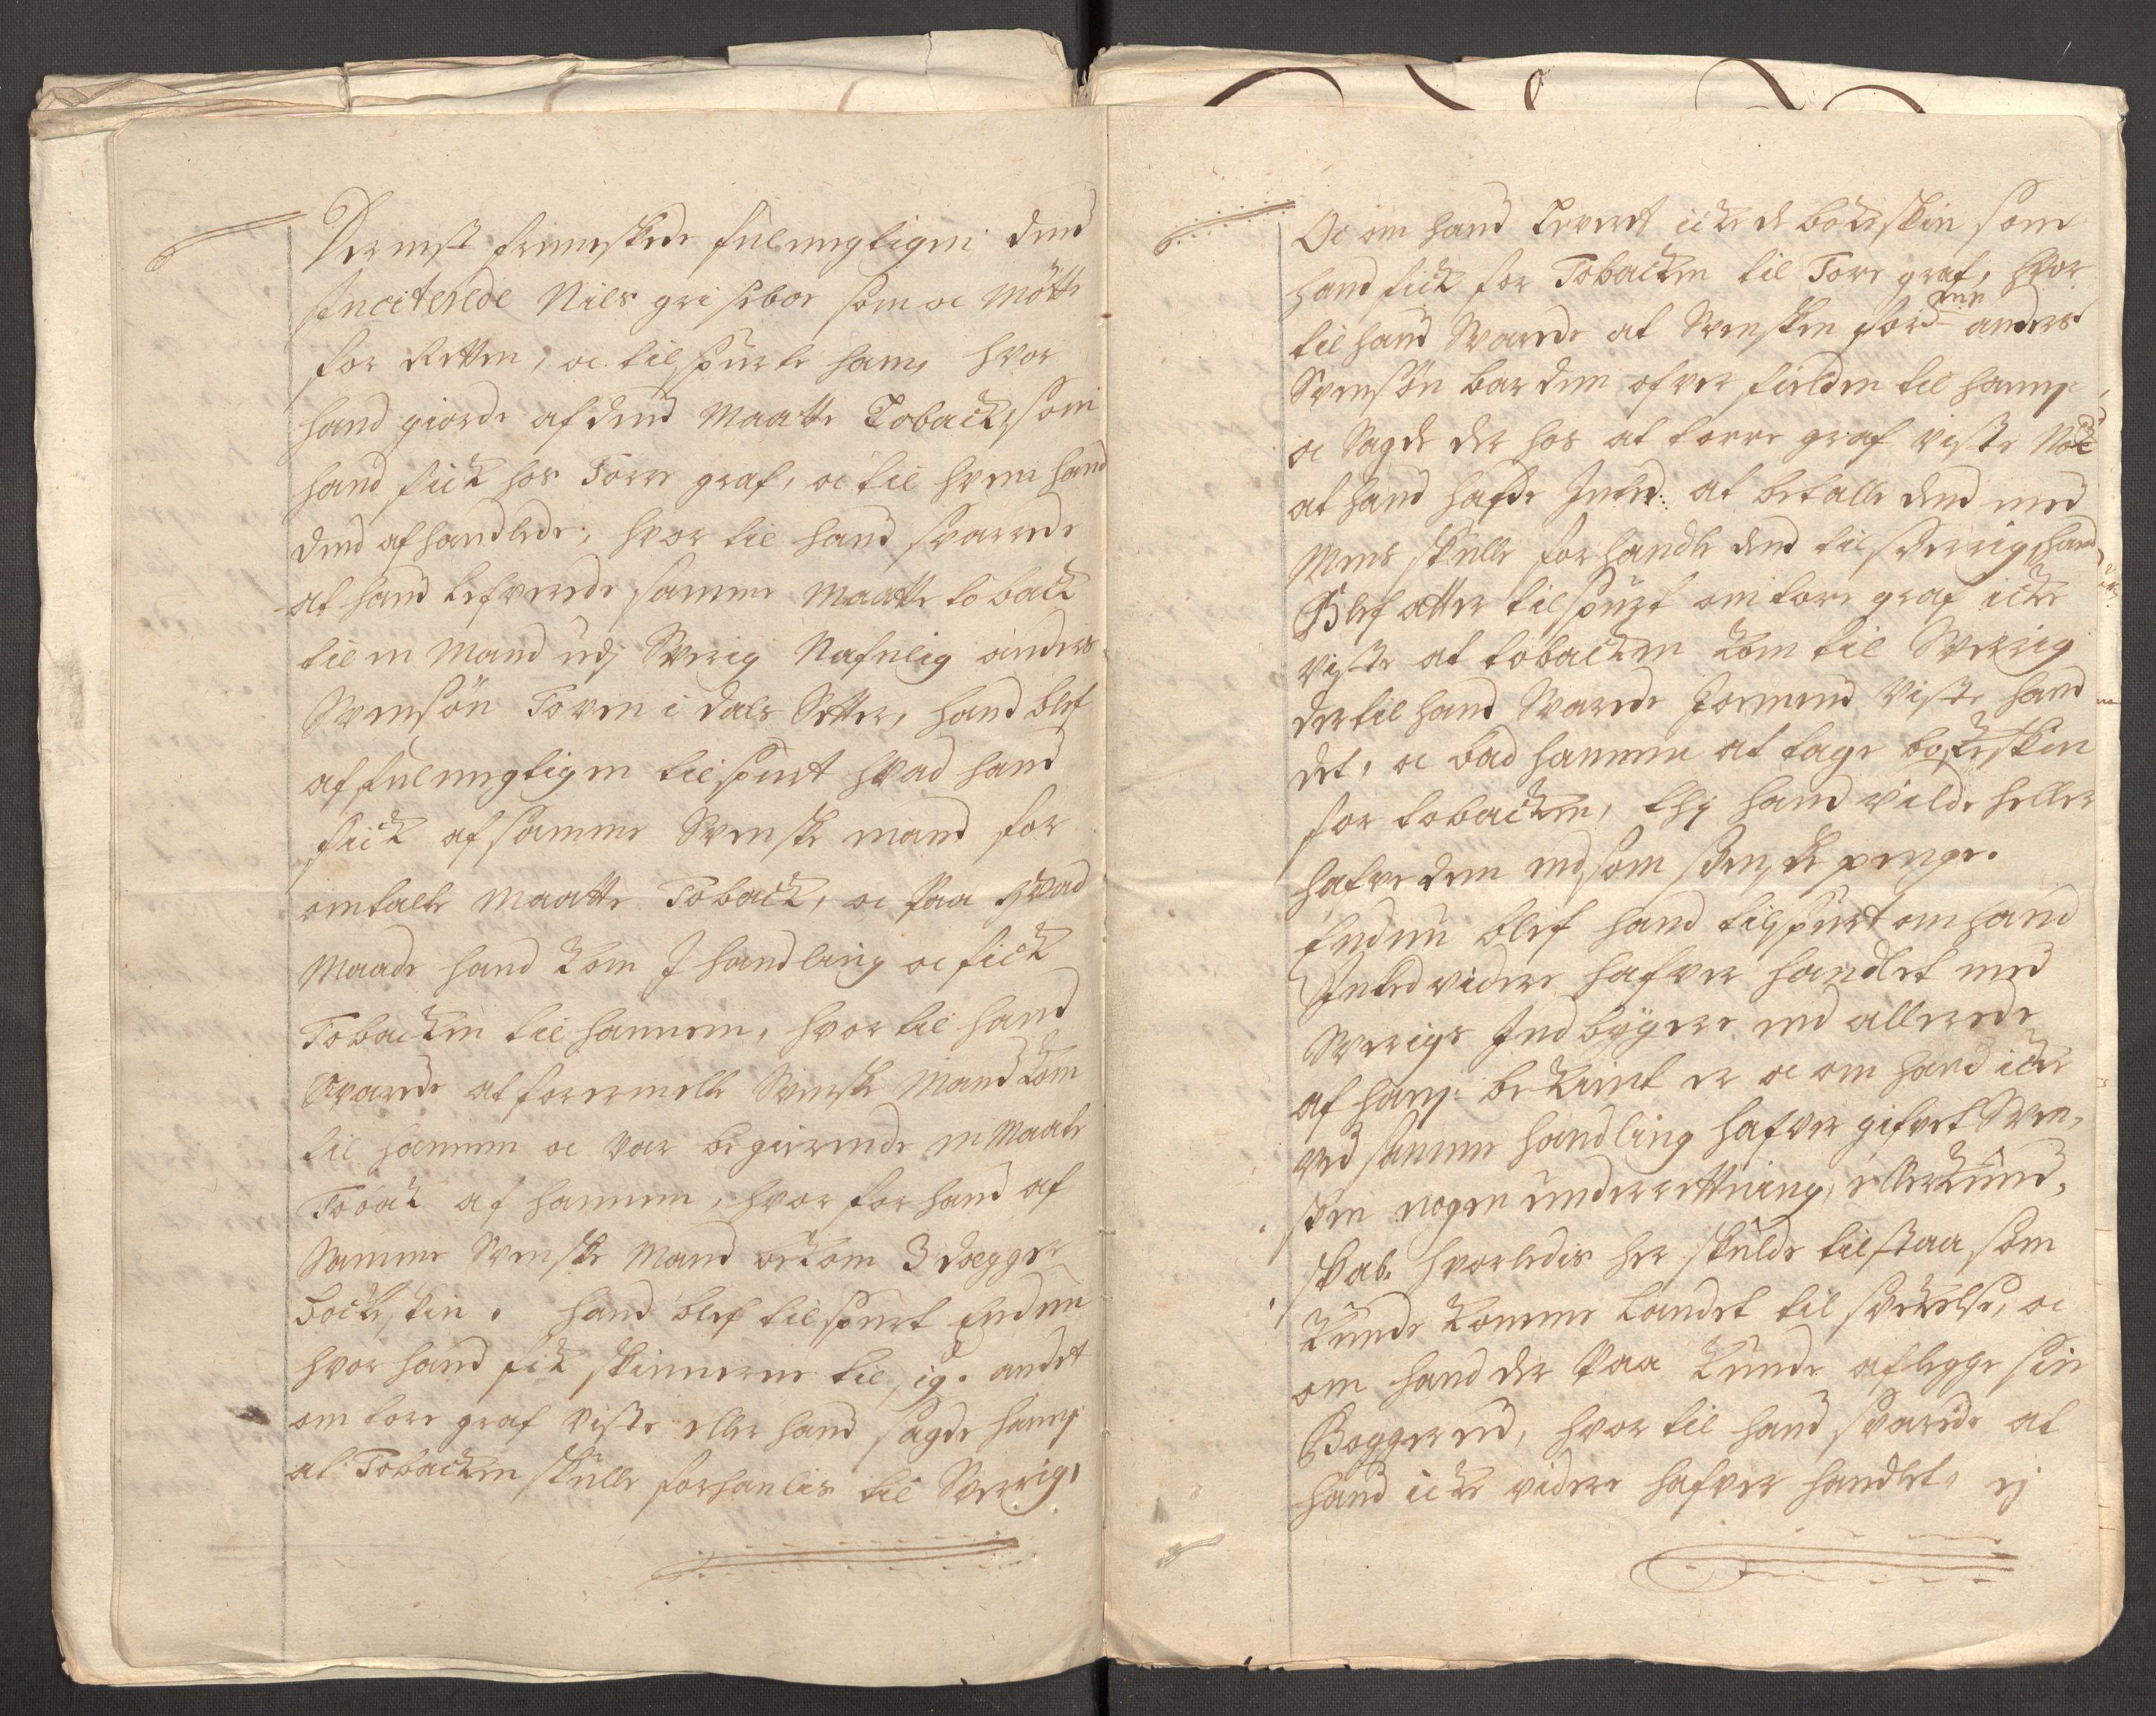 Dernest fremeskede fulmegtigen dend
Inciterede Niels griseboe som oc Mötte
for Retten, oc tilspurte ham, hvor
hand giorde af dend Maatte Toback, som
hand fick hos Torre graf, oc til hvem hand
dend afhandlede, hvor til hand svarrede
at hand lefverede samme Maatte toback
til en Mand udj Sverig Nafnlig anders
Svensön Toven i dals Setter, hand blef
af fulmegtigen tilspurt hvad hand
fick af samme Svenske mand for
omtalte Maatte Toback, oc paa hvad
Maade hand kom J handling oc fick
Tobacken til hannem, hvor til hand
Svarede at forermelte Svenske Mand kom
til hannem oc var begierende en Maate
Toback af hannem, hvor for hand af
Samme Svenske Mand bekom 3 dægger
bockeskin. hand blef tilspurt Endnu
hvor hand fik skinnerne til sig. andet
om tore graf viste eller hand sagde ham
at Tobacken skulle forhanlis til Sverrig,
Oc om hand Levert icke de bockeskin som
hand fick for Tobacken til Torre graf, hvor
til hand Svarede at Svensken ford anders
Svensön bar dem ofver fielden til hannem
oc Sagde der hos at torre graf viste Nock
at hand hafde Inted at betalle dend med
Mens skulle forhandle dend til Sverrig, hand
Blef atter tilspurt om tore graf icke
viste at tobacken kom til Sverrig
dertil hand Svarede Jormend Viste hand
det, oc bad hannem at tage bockeskin
for tobacken, thj hand vilde heller
hafve dem end som svenske penge.
Endnu blef hand tilspurt om hand
Inted videre hafver handlet med
Sverigs Indbyggere end allerede
af ham bekient er oc om hand icke
ved samme handling hafver gifvet Sven,
sken nogen underrettning, eller kund,
skab, hvorledis her skulde tilstaa, som
kunde komme Landet til svekelse, oc
om hand der paa kunde aflegge sin
Boggereed, hvor til hand svarede at
hand icke videre hafver handlet, ej